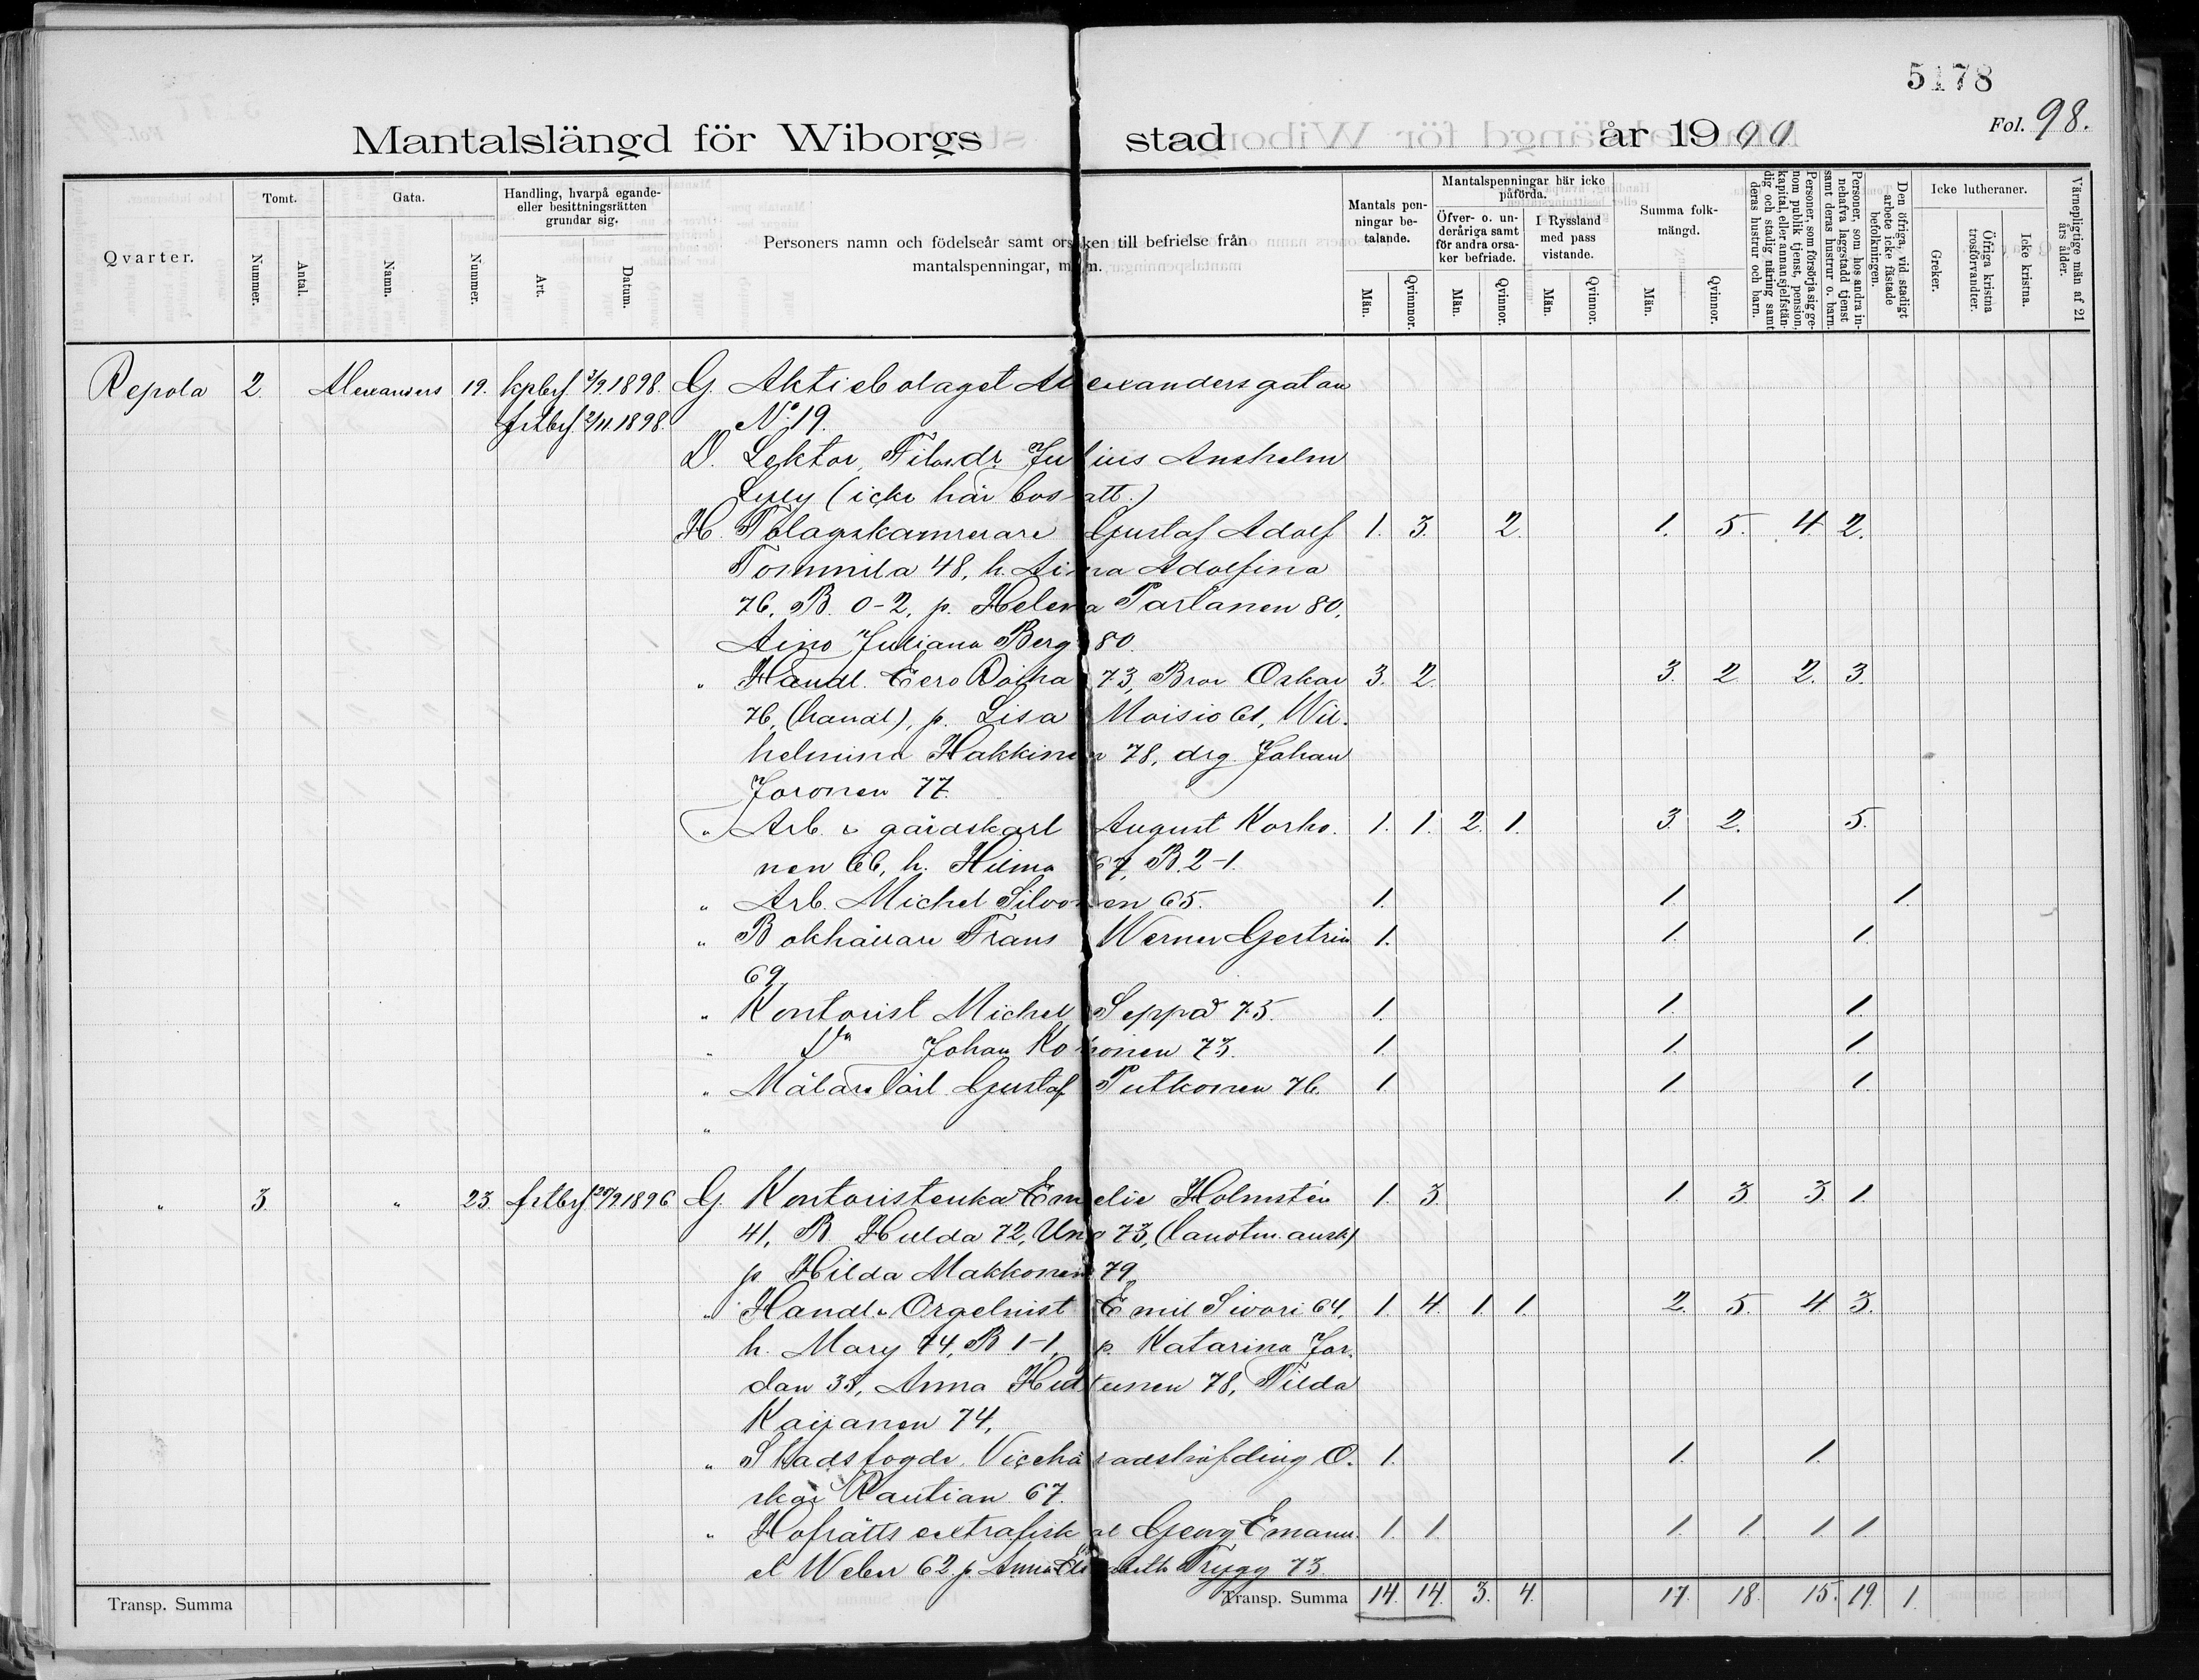 5178
Fol. 98.
Mantalslängd för Wiborgs stad år 1900
Qvarter.
Tomt.
Nummer.
Antal.
Gata.
Namn.
Nummer.
Handling, hvarpå egande- eller besittningsrätten grundar sig.
Art.
Datum.
Personers namn och födelseår samt orsaken till befrielse från mantalspenningar, m. m.
Mantals penningar betalande.
Män.
Qvinnor.
Mantalspenningar här icke påförda.
Öfver- o. underåriga samt för andra orsaker befriade.
Män.
Qvinnor.
I Ryssland med pass vistande.
Män.
Qvinnor.
Summa folkmängd.
Män.
Qvinnor.
Personer, som försörja sig genom publik tjenst, pension, kapital, eller annan sjelfständig och stadig näring samt deras hustrur och barn.
Personer, som hos andra innehafva laggstadd tjenst samt deras hustrur o. barn.
Den öfriga, vid stadigt arbete icke fästade befolkningen.
Icke lutheraner.
Greker.
Öfriga kristna trosförvandter.
Icke kristna.
Värnepligtige män af 21 års ålder.
Repola 2. Alexanders 19. kpbrf 3/9.1898. G. Aktiebolaget Alexandersgatan
fstbrf 2/11.1898. No 19.
D. Lektor, Filos.dr Julius Anshelm
Lyly (icke här bosatt.)
H. Tolagskamrerare Gustaf Adolf 1. 3. 2. 1. 5. 4. 2.
Tommila 48, h. Aina Adolfina
76, B. 0-2, p. Helena Partanen 80,
Aino Juliana Berg 80.
" Handl. Eero Roiha 73, Bror Oskar 3. 2. 3. 2. 2. 3.
76, (handl), p. Lisa Moisio 61, Wil-
helmina Hakkinen 78, drg. Johan
Joronen 77.
" Arb. o gårdskarl August Korho- 1. 1. 2. 1. 3. 2. 5.
nen 66, h. Hilma 67, B. 2-1.
" Arb. Michel Silvonen 65. 1. 1. 1.
" Bokhållare Frans Werner Gestrin 1. 1. 1.
69.
" Kontorist Michel Seppä 75. 1. 1. 1.
" Do Johan Kononen 73. 1. 1. 1.
" Målarelärl. Gustaf Putkonen 76. 1. 1. 1.
"
" 3. " 23. fstbrf 28/9.1896 G. Kontoristenka Emelie Holmstén 1. 3. 1. 3. 3. 1.
41, B. Hulda 72, Uno 73, (landtm. ausk)
p Hilda Makkonen 79
" Handl. o Orgelnist Emil Sivori 64, 1. 4. 1. 1. 2. 5. 4. 3.
h. Mary 74, B 1-1, p. Katarina Jor-
dan 33, Anna Huttunen 78, Tilda
Kaijanen 74,
" Stadsfogde, Vicehäradshöfding O- 1. 1. 1.
skar Rautian 67.
" Hofrätts extrafiskal Georg Emanu- 1. 1. 1. 1. 1. 1.
el Weber 62. p. Anna Elisabeth Trygg 73
Transp. Summa
Transp. Summa 14. 14. 3. 4. 17. 18. 15. 19. 1.